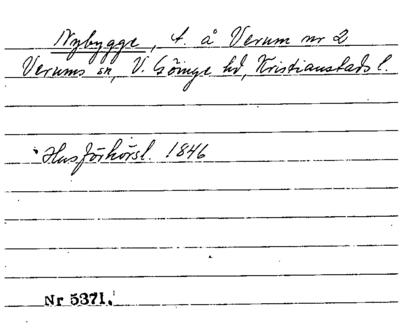 Nybygge, t. å Verum nr 2
Verums sn, V. Göinge hd, Kristianstads l.
Husförhörsl. 1846
Nr 5371.